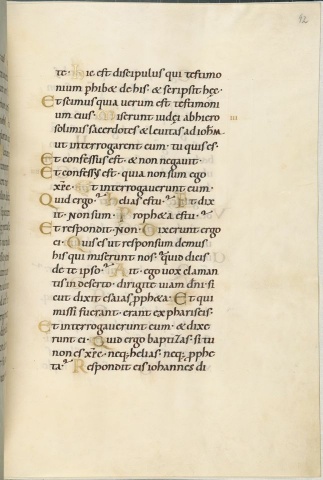 92
te · Hic est discipulus qui testimo
nium phibæ de his · & scripsit hęc ·
Et scimus quia uerum est testimoni
um eius · Miserunt iudęi abhiero
solimis sacerdotes & leuitas ad ioħm
ut interrogarent eum · tu quis es ·
Et confessus est · & non negauit ·
Et confessus est · quia non sum ego
xp̄c · Et interrogauerunt eum ·
Quid ergo · helias es tu · Et dix
it · Non sum · Propheta es tu ·
Et respondit · Non · Dixerunt ergo
ei · Quis es ut responsum demus
his qui miserunt nos · quid dicis
de te ipso · Ait · ego uox claman
tis in deserto · dirigite uiam dn̄i · si
cut dixit esaias ꝓph&a · Et qui
missi fuerant · erant ex phariseis ·
Et interrogauerunt eum · & dixe
runt ei · Quid ergo baptizas · si tu
non es xp̄c · neq; helias · neq; ꝓphe
ta · Respondit eis iohannes di